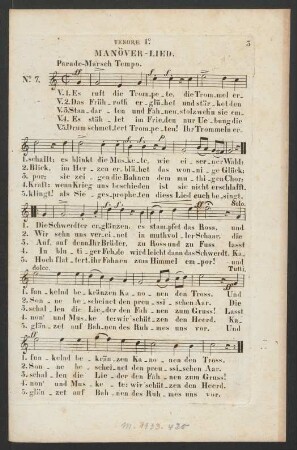 TENORE 1º
3
MANÖVER-LIED.
Parade-Marsch Tempo.
Nº 7.
V.1. Es ruft die Trom_pe_te, die Trom_mel er_
V.2. Das Früh_roth er_glühet und stär_ket den
V.3. Stan_dar_ten und Fah_nen, stolz wehn sie em_
V.4. Es stählt, im Frieden, nur Ue_bung die
V.5. Drum schmettert Trom_pe_ten! Ihr Trommeln er_
1. schallt; es blinkt die Mus_ke_te, wie ei_ser_ner Wald:
2. Blick, im Her_zen er_blü_het, das won_ni_ge Glück:
3. por; sie zei_gen die Bahnen dem mu_thi_gen Chor;
4. Kraft: wenn Krieg uns beschieden ist sie nicht erschlafft.
5. klingt! als Sie_ges_prophe_ten diess Lied euch be_singt.
Solo.
1. Die Schwerdter er_glänzen, es stampfet das Ross, und
2. Wir sehn uns verei_net in muthvol_ler Schaar, die
3. Auf, auf denn Ihr Brüder, zu Ross und zu Fuss
4. In blu_ti_ger Feh_de wird leicht dann das Schwerdt. Ka_
5. Hoch flat_tert ihr Fahnen zum Himmel em_por! und
dolce.
Tutti.
1. fun_kelnd be_krän_zen Ka_no_nen den Tross. Und
2. Son_ne be_scheinet den preu_ssi_schen Aar. Die
3. schal_len die Lie_der den Fah_nen zum Gruss! Lasst
4. non' und Mus_ke_te: wir schätzen den Heerd. Ka_
5. glän_zet auf Bah_nen des Ruh_mes uns vor. Und
1. fun_kelnd be_krän_zen Ka_no_nen den Tross.
2. Son_ne be_schei_net den preu_ssi_schen Aar.
3. schal_len die Lie_der den Fah_nen zum Gruss!
4. non' und Mus_ke_te: wir schätz_en den Heerd.
5. glän_zet auf Bah_nen des Ruh_mes uns vor.